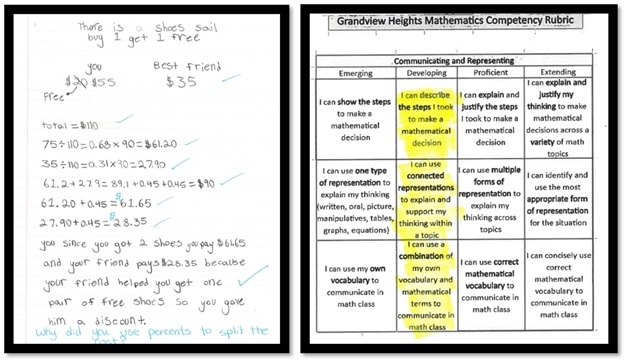 There is a shoes sail
buy 1 get 1 free
you Best friend
$20 $55 $35
Free
total = $110
75÷110=0.68 x 90=$61.20
35÷110=0.31x90=27.90
61.2+27.9=89.1+0.45+0.45=$90
61.20+0.45=$61.65
27.90+0.45=$28.35
you since you got 2 shoes you pay $61.65
and your friend pays $28.35 because
your friend helped you get one
pair of free shoes so you gave
him a discount.
Why did you use percents to split the
Grandview Heights Mathematics Competency Rubric
Communicating and Representing
Emerging
Developing
Proficient
Extending
I can show the steps
to make a
mathematical
decision
I can describe
the steps I took
to make a
mathematical
decision
I can explain and
justify the steps
I took to make a
mathematical
decision
I can explain and
justify my
thinking to make
mathematical
decisions across a
variety of math
topics
I can use one type
of representation to
explain my thinking
(written, oral, picture,
manipulatives, tables,
graphs, equations)
I can use
connected
representations
to explain and
support my
thinking within
a topic
I can use multiple
forms of
representation to
explain my
thinking across
topics
I can identify and
use the most
appropriate form
of representation
for the situation
I can use my own
vocabulary to
communicate in
math class
I can use a
combination of
my own
vocabulary and
mathematical
terms to
communicate in
math class
I can use correct
mathematical
vocabulary to
communicate in
math class
I can concisely use
correct
mathematical
vocabulary to
communicate in
math class